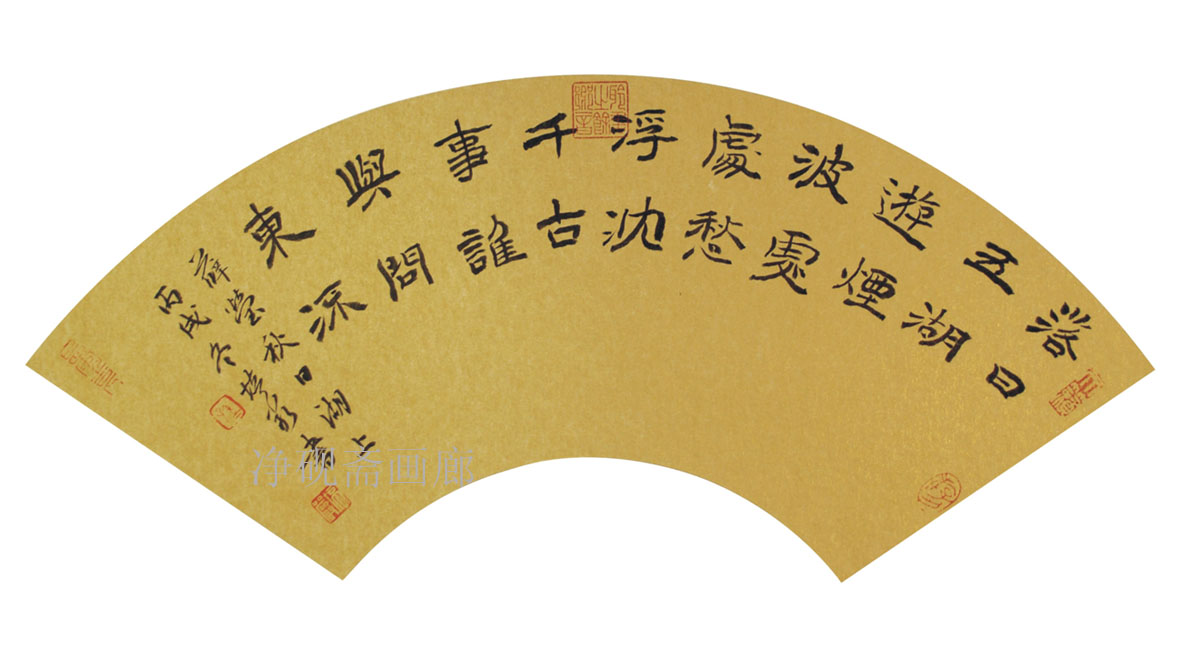 落日
五湖
遊煙
波處
處愁
浮沈
千古
事誰
與問
東流
薛瑩秋日湖上
丙戌冬書
净砚斋画廊